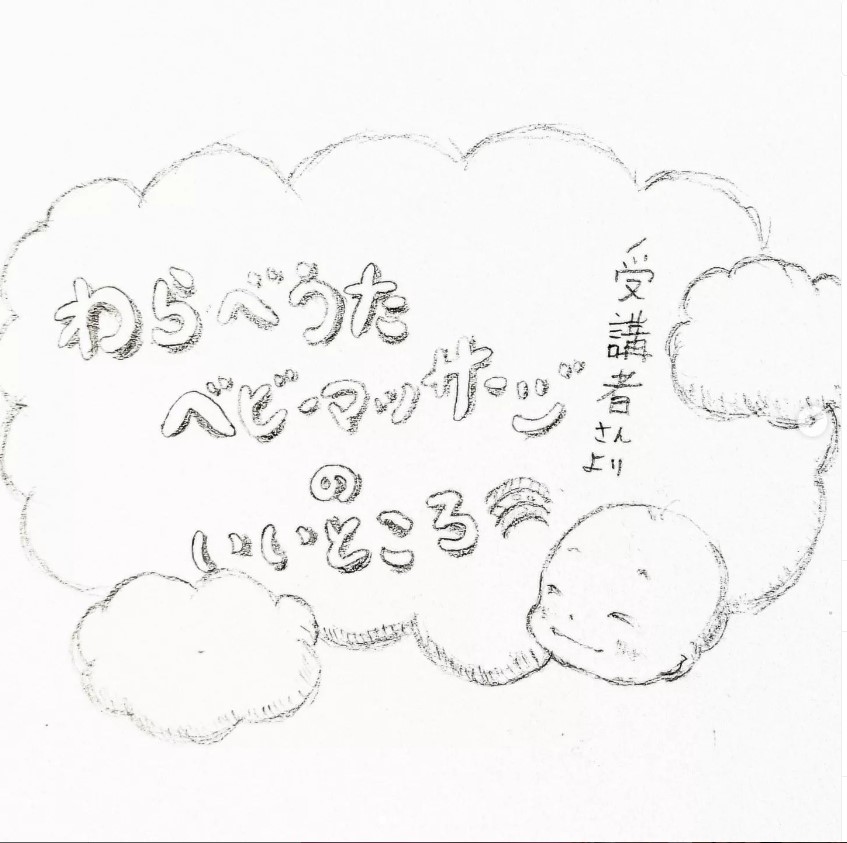 わらべうた
ベビーマッサージ
の
いいところ
受講者さん
より